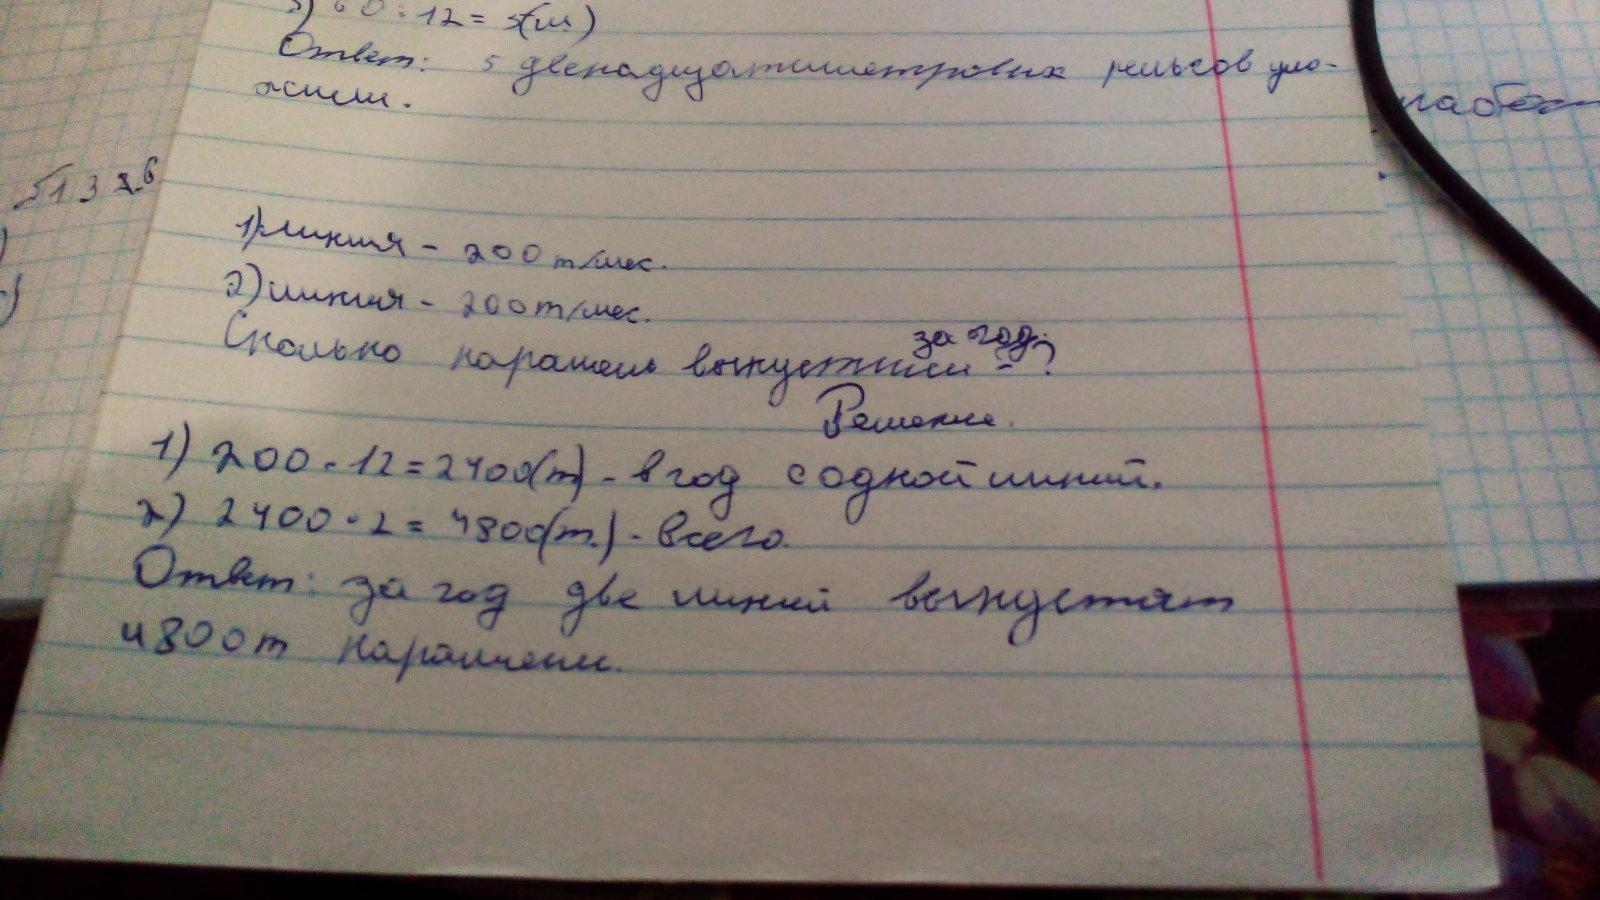 3) 60:12= 5(ш.)
Ответ: 5 двенадцатиметровых рельсов уло-
жили.
работ
1) линия - 200 т/мес.
2) линия - 200 т/мес.
за год
Сколько карамель выпустили - ?
Решение.
1) 200·12=2400(т) - в год с одной линий.
2) 2400·2= 4800(т.) - всего.
Ответ: за год две линий выпустят
4800т карамели.